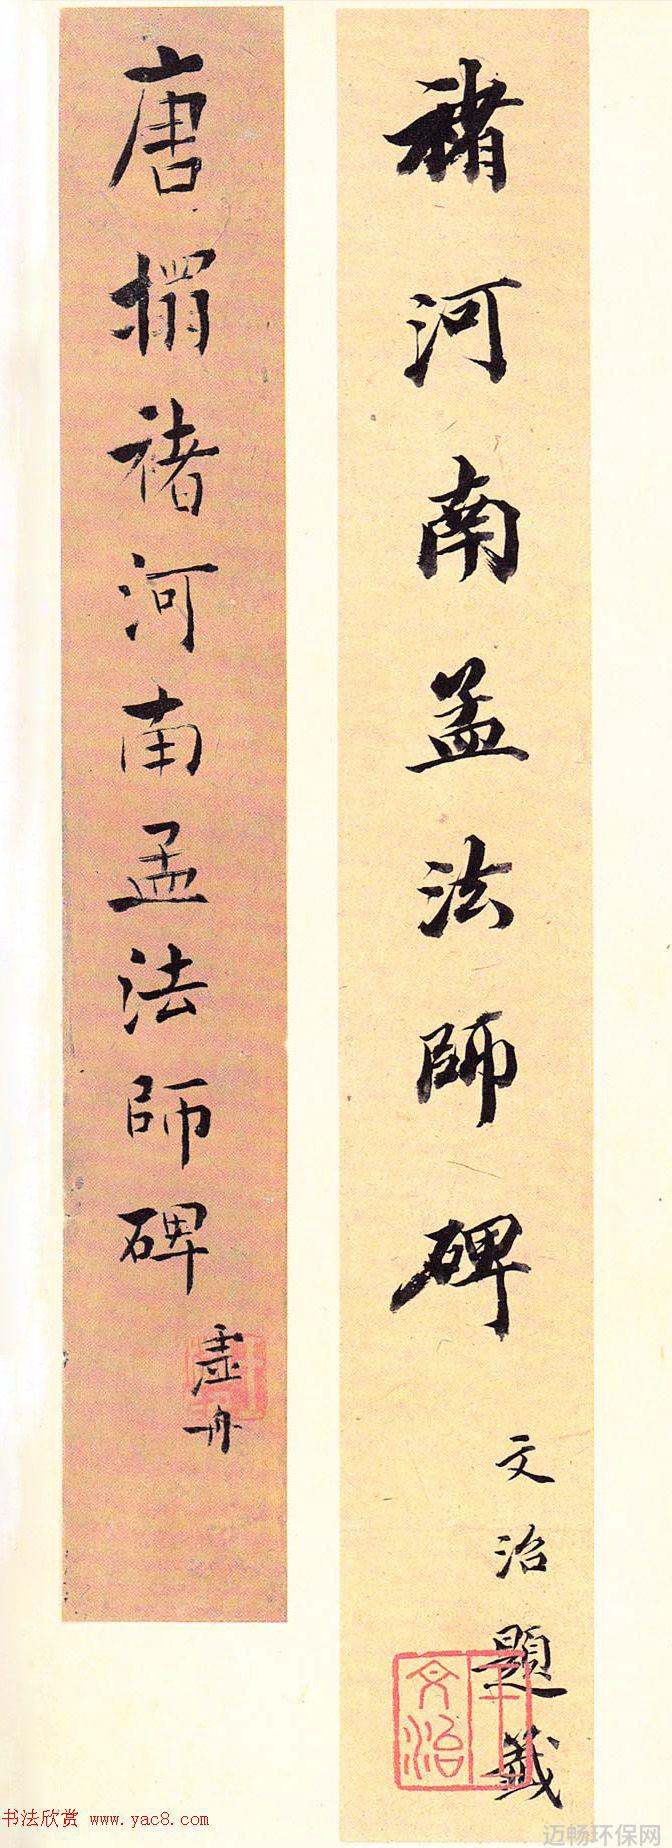 褚河南孟法師碑
文治題籤
王文治
唐搨褚河南孟法師碑
虛舟
书法欣赏 www.yac8.com
迈畅环保网